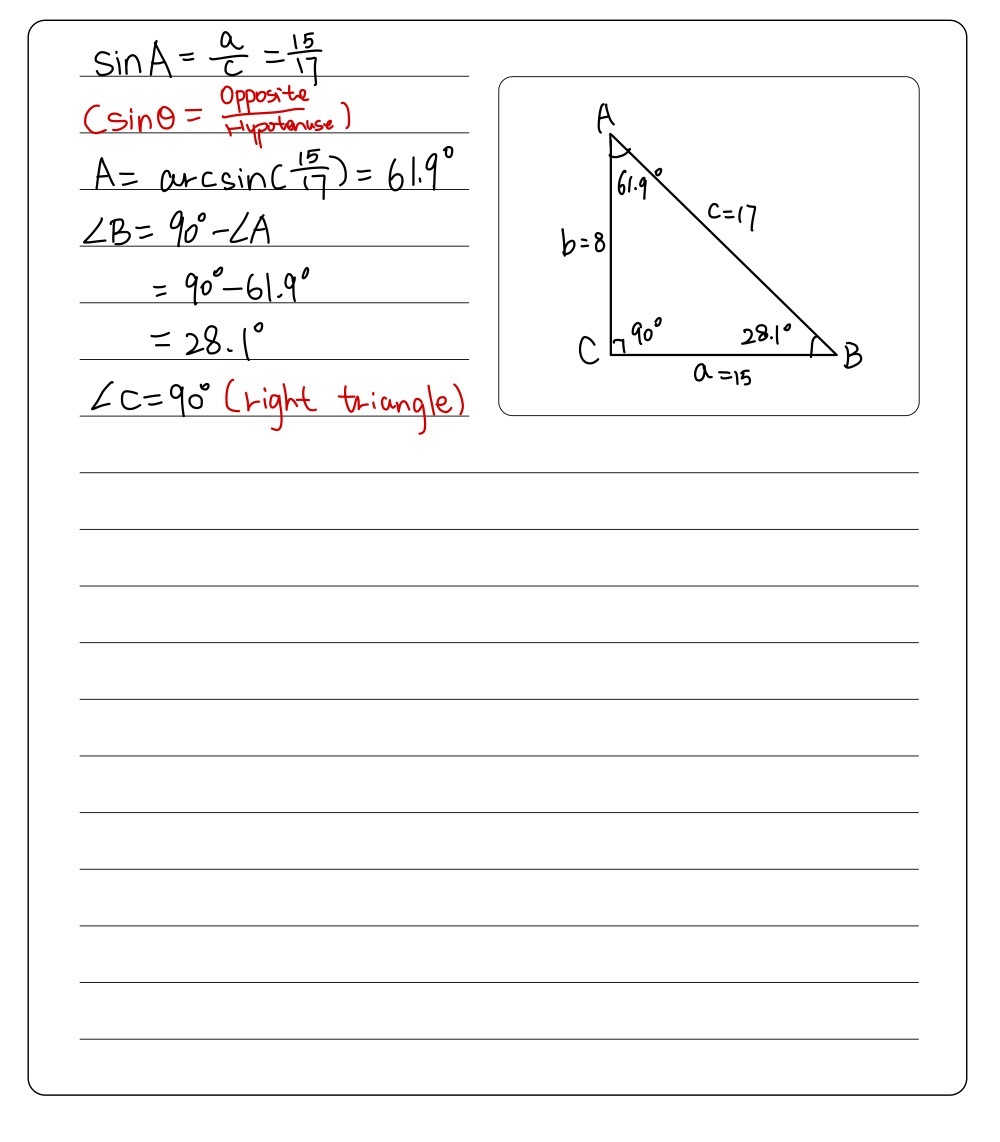 sin A = a/c = 15/17
(sinθ = Opposite/Hypotenuse)
A = arcsin(15/17) = 61.9°
∠B = 90° - ∠A
= 90° - 61.9°
= 28.1°
∠C = 90° (right triangle)
A
61.9°
c=17
b=8
C
90°
28.1°
B
a=15